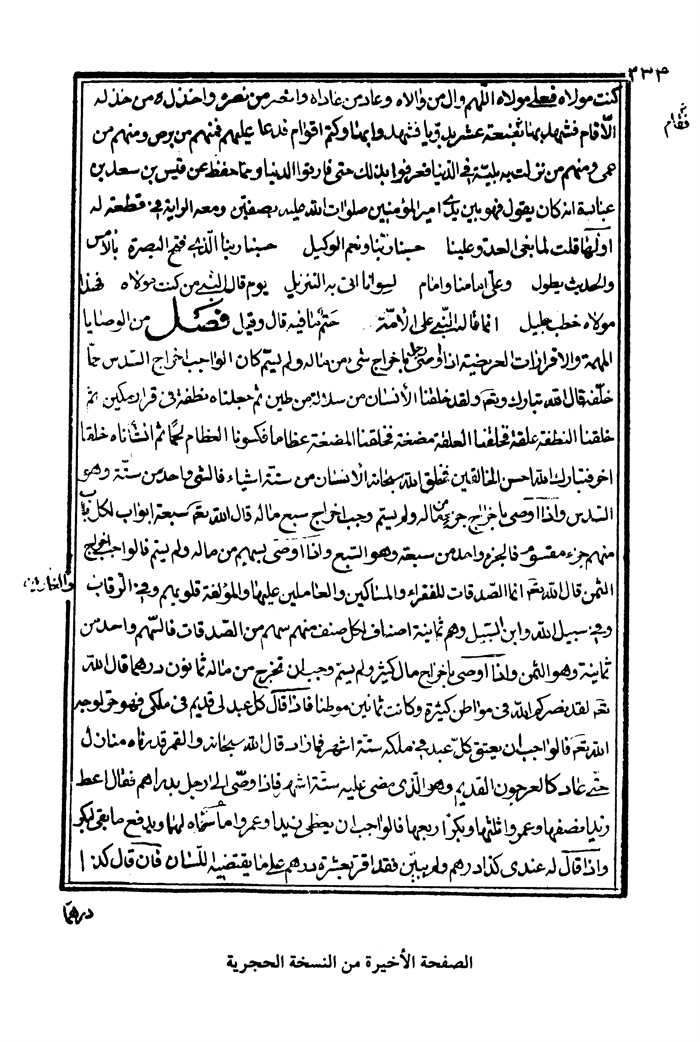 ٢٣٤
كنت مولاه فعلي مولاه اللهم وال من والاه وعاد من عاداه وانصر من نصره واخذل من خذله
فقام
الا قام فشهد بها بضعة عشر بدريا فشهدوا بها وكتم اقوام فدعا عليهم فمنهم من برص ومنهم من
عمى ومنهم من نزلت به بلية في الدنيا فعرفوا بذلك حتى فارقوا الدنيا ومما حفظ عن قيس بن سعد بن
عبادة انه كان يقول فهو بين يدي امير المؤمنين صلوات الله عليه بصفين ومعه الراية في قطعة له
اولها قلت لما بغى العدو علينا حسبنا ربنا ونعم الوكيل حسبنا ربنا الذي فتح البصرة بالامس
والحديث يطول وعلي امامنا وامام لسوانا اتى به التنزيل يوم قال النبي من كنت مولاه فهذا
مولاه خطب جليل انما قاله النبي على الامة حتم ما فيه قال وقيل فصل من الوصايا
المبهمة والاقرارات العريضة اذا اوصى رجل باخراج شي من ماله ولم يسم كان الواجب اخراج السدس مما
خلفه قال الله تبارك وتعه ولقد خلقنا الأنسان من سلالة من طين ثم جعلناه نطفة في قرار مكين ثم
خلقنا النطفة علقة فخلقنا العلقة مضغة فخلقنا المضغة عظاما فكسونا العظام لحما ثم انشأناه خلقا
اخر فتبارك الله احسن الخالقين فخلق الله سبحانه الانسان من ستة اشياء فالشي واحد من ستة وهو
السدس واذا اوصى باخراج جزء من ماله ولم يسم وجب اخراج سبع ماله قال الله تعه سبعة ابواب لكل باب
منهم جزء مقسوم فالجزء واحد من سبعة وهو السبع واذا اوصى بسهم من ماله ولم يسم فالواجب اخراج
الثمن قال الله تعه انما الصدقات للفقراء والمساكين والعاملين عليها والمؤلفة قلوبهم وفي الرقاب
والغارمين
وفي سبيل الله وابن السبيل وهم ثمانية اصناف لكل صنف منهم سهم من الصدقات فالسهم واحد من
ثمانية وهو الثمن واذا اوصى باخراج مال كثير ولم يسم وجب ان تخرج من ماله ثمانون درهما قال الله
تعه لقد نصركم الله في مواطن كثيرة وكانت ثمانين موطنا فاذا قال كل عبد لي قديم في ملكي فهو حر لوجه
الله تعه فالواجب ان يعتق كل عبد في ملكه ستة اشهر فما زاد قال الله سبحانه والقمر قدرناه منازل
حتى عاد كالعرجون القديم وهو الذي مضى عليه ستة اشهر فاذا وصى الى رجل بدراهم فقال اعط
زيدا نصفها وعمروا ثلثها وبكرا ربعها فالواجب ان يعطى زيدا وعمروا ما سماه لهما ويدفع ما بقى لبكر
واذا قال له عندي كذا درهم ولم يبين فقد اقر بعشرة درهم على ما يقتضيه اللسان فان قال كذا
درهما
الصفحة الأخيرة من النسخة الحجرية